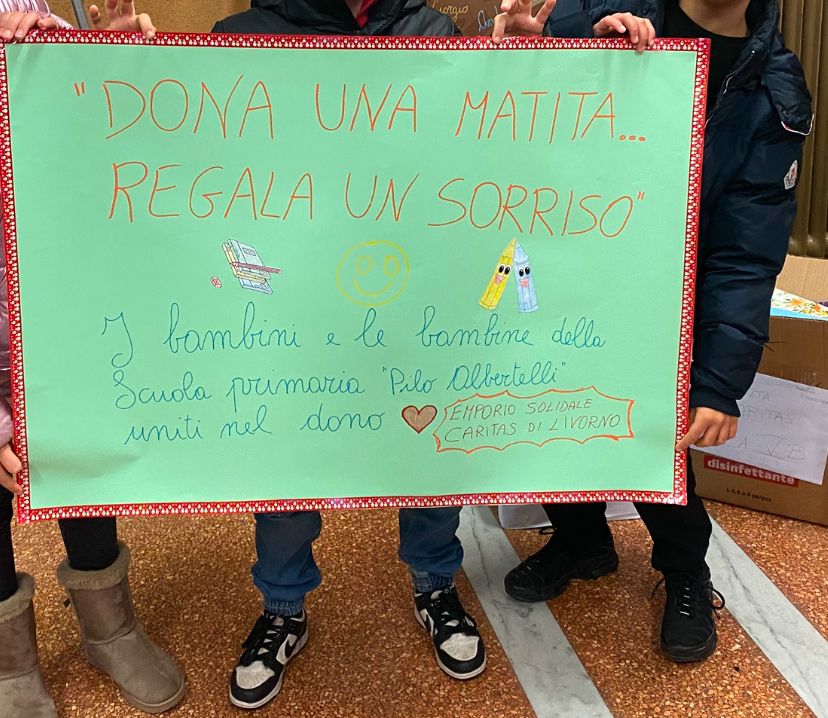 Giorgio
"DONA UNA MATITA...
REGALA UN SORRISO"
I bambini e le bambine della
Scuola primaria "Pilo Albertelli"
uniti nel dono
EMPORIO SOLIDALE
CARITAS DI LIVORNO
disinfettante